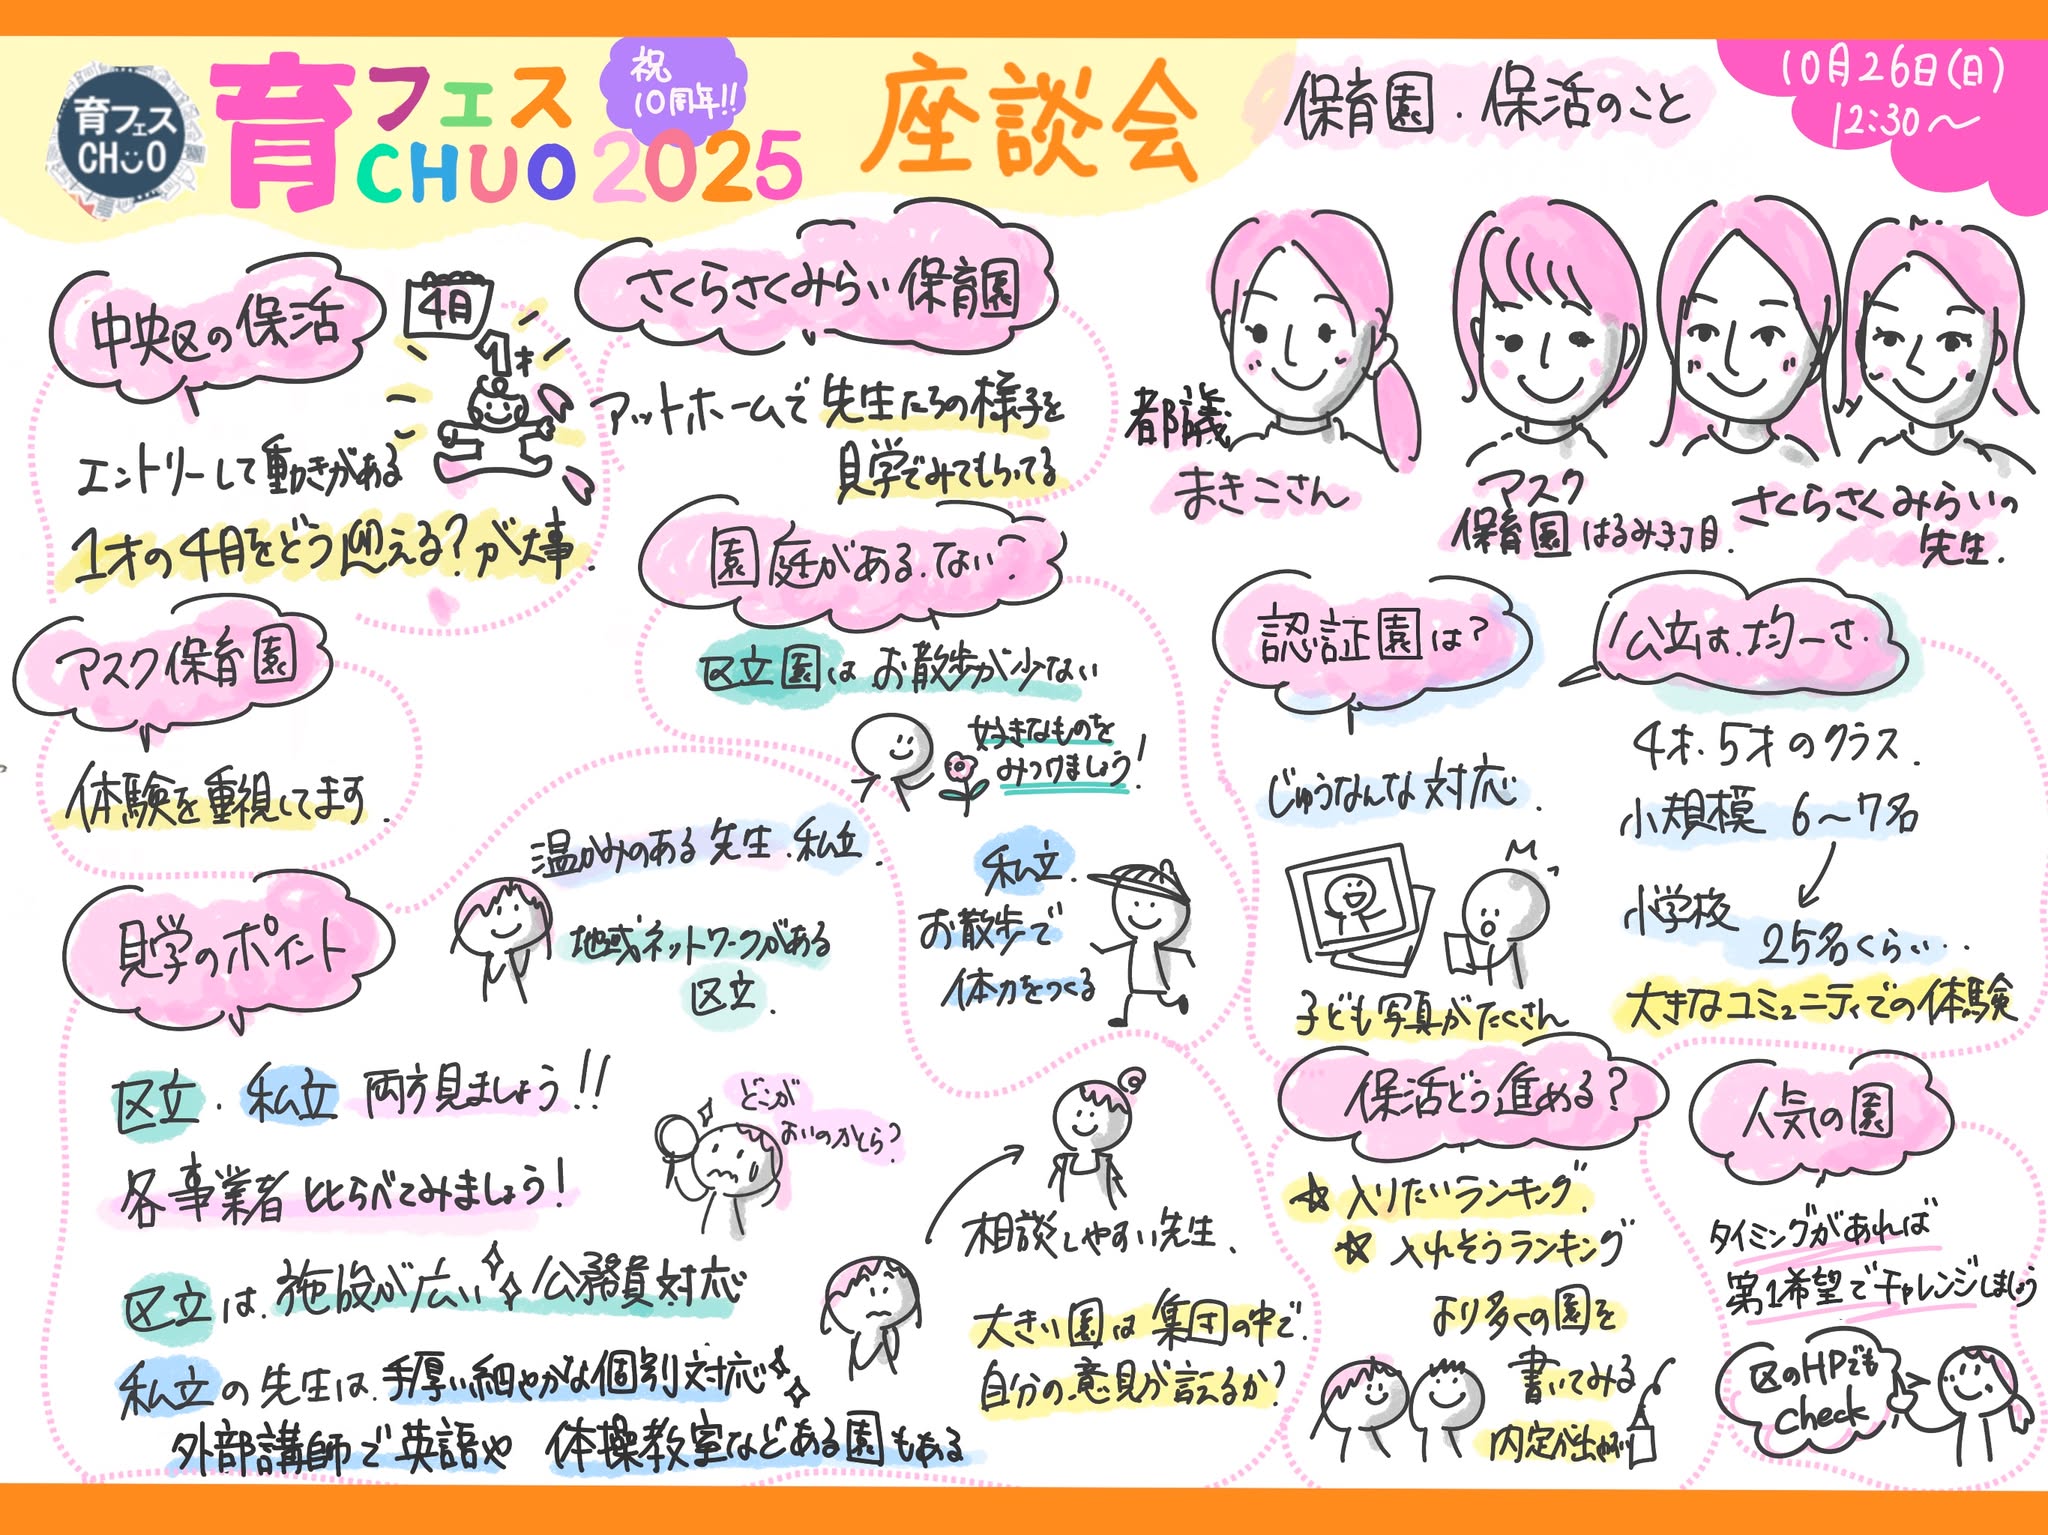 育フェス
CHUO
育フェス
CHUO 2025
祝
10周年!!
座談会
保育園・保活のこと
10月26日(日)
12:30〜
中央区の保活
4月
1才
エントリーして動きがある
1才の4月をどう迎える?が大事.
さくらさくみらい保育園
アットホームで先生たちの様子を
見学でみてもらってる
都議
まきこさん
アスク
保育園はるみ3丁目.
さくらさくみらいの
先生.
アスク保育園
体験を重視してます.
園庭がある.ない?
区立園はお散歩が少ない
好きなものを
みつけましょう!
私立.
お散歩で
体力をつくる
認証園は?
じゅうなんな対応.
子ども写真がたくさん
公立は.均一さ.
4才.5才のクラス.
小規模 6〜7名
小学校
25名くらい..
大きなコミュニティでの体験
見学のポイント
温かみのある先生.私立.
地域ネットワークがある
区立.
区立.私立 両方見ましょう!!
各事業者比らべてみましょう!
どこが
よいのかしら?
区立は.施設が広い 公務員対応
私立の先生は.手厚い細やかな個別対応
外部講師で英語や 体操教室などある園もある
相談しやすい先生.
大きい園は集団の中で.
自分の意見が言えるか?
保活どう進める?
☆入りたいランキング.
☆入れそうランキング
より多くの園を
書いてみる
内定が出やすい
人気の園
タイミングがあれば
第1希望でチャレンジしましょう
区のHPでも
check